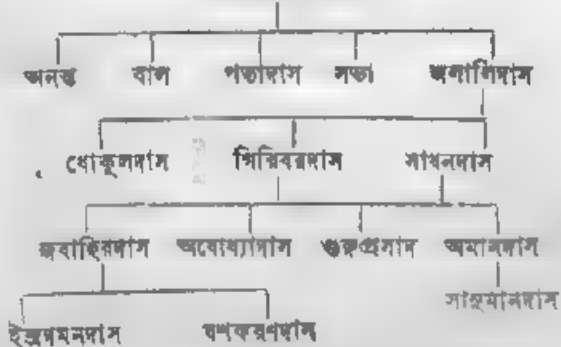 অনন্ত বাল পত্তাদাস সত্তা জলালিদাস
ধোকূলদাস গিরিবরদাস সাধনদাস
জবাহিরদাস অযোধ্যাদাস গুরুপ্রসাদ অমানদাস
সালুমানদাস
ইন্দ্রদমনদাস যশকরণদাস